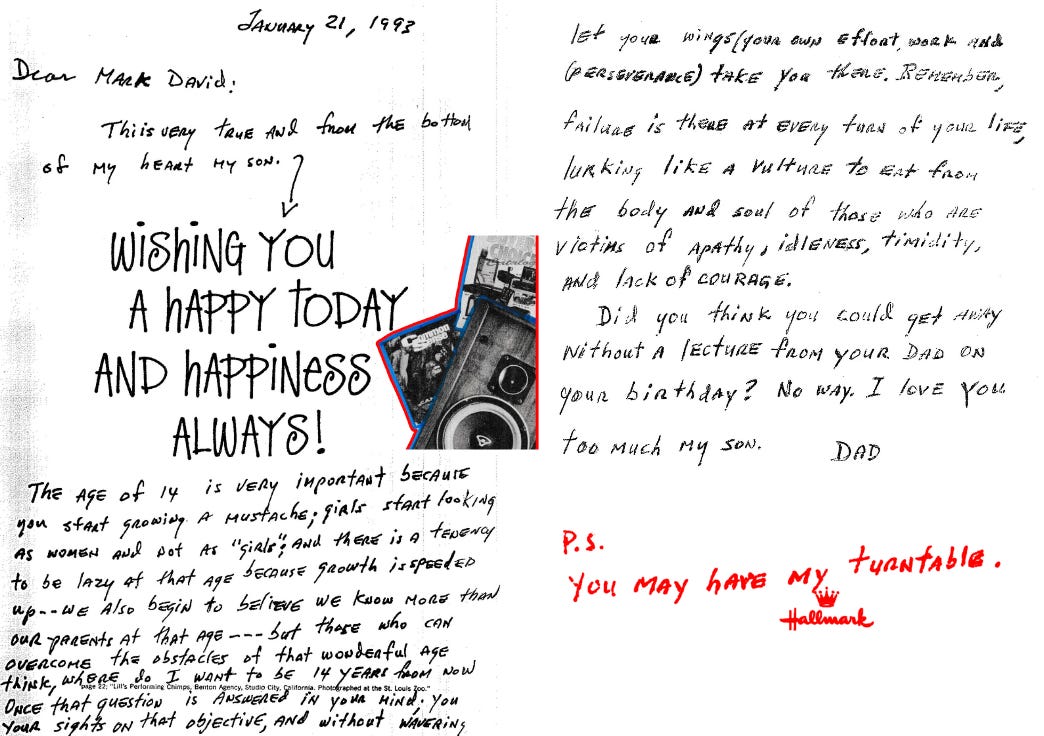 JANUARY 21, 1993
Dear MARK DAVID:
This is VERY TRUE AND from THE bottom
of MY hEART MY SON.
WiSHiNG YOU
A hAPPY TODAY
AND hAPPiNESS
ALWAYS!
THE AGE of 14 is VERY important because
you START growing A MUSTACHE; girls START looking
AS WOMEN AND NOT AS "girls"; AND THERE IS A TENENCY
to be lazy AT that AGE because growth is SPEEDED
up--WE Also begin to believe WE KNOW MORE THAN
OUR PARENTS AT that AGE --- but those who CAN
OVERCOME the obstacles of that wonderful AGE
think, WHERE do I WANT to bE 14 YEARS from NOW
page 22: "Lill's Performing Chimps, Benton Agency, Studio City, California. Photographed at the St. Louis Zoo."
ONCE that question is ANSWERED IN YOUR MIND. You
YOUR sights ON that objective, AND without WAVERING
let your wings (your own Effort, WORK AND
(PERSEVERANCE) TAKE You there. REMEMBER,
FAILURE is thERE AT EVERY turn of your lifE,
lURKING liKE A VULTURE TO EAT from
the body AND soul of those who ARE
victims of APAThy, idLENESS, timidity,
AND lACK of COURAGE.
Did you think you could get AWAY
Without A LECTURE FROM YOUR DAD ON
your birthday? No WAY. I lovE YOU
too much my SON.
DAD
P.S.
YOU MAY hAVE MY TURNTABLE.
Hallmark